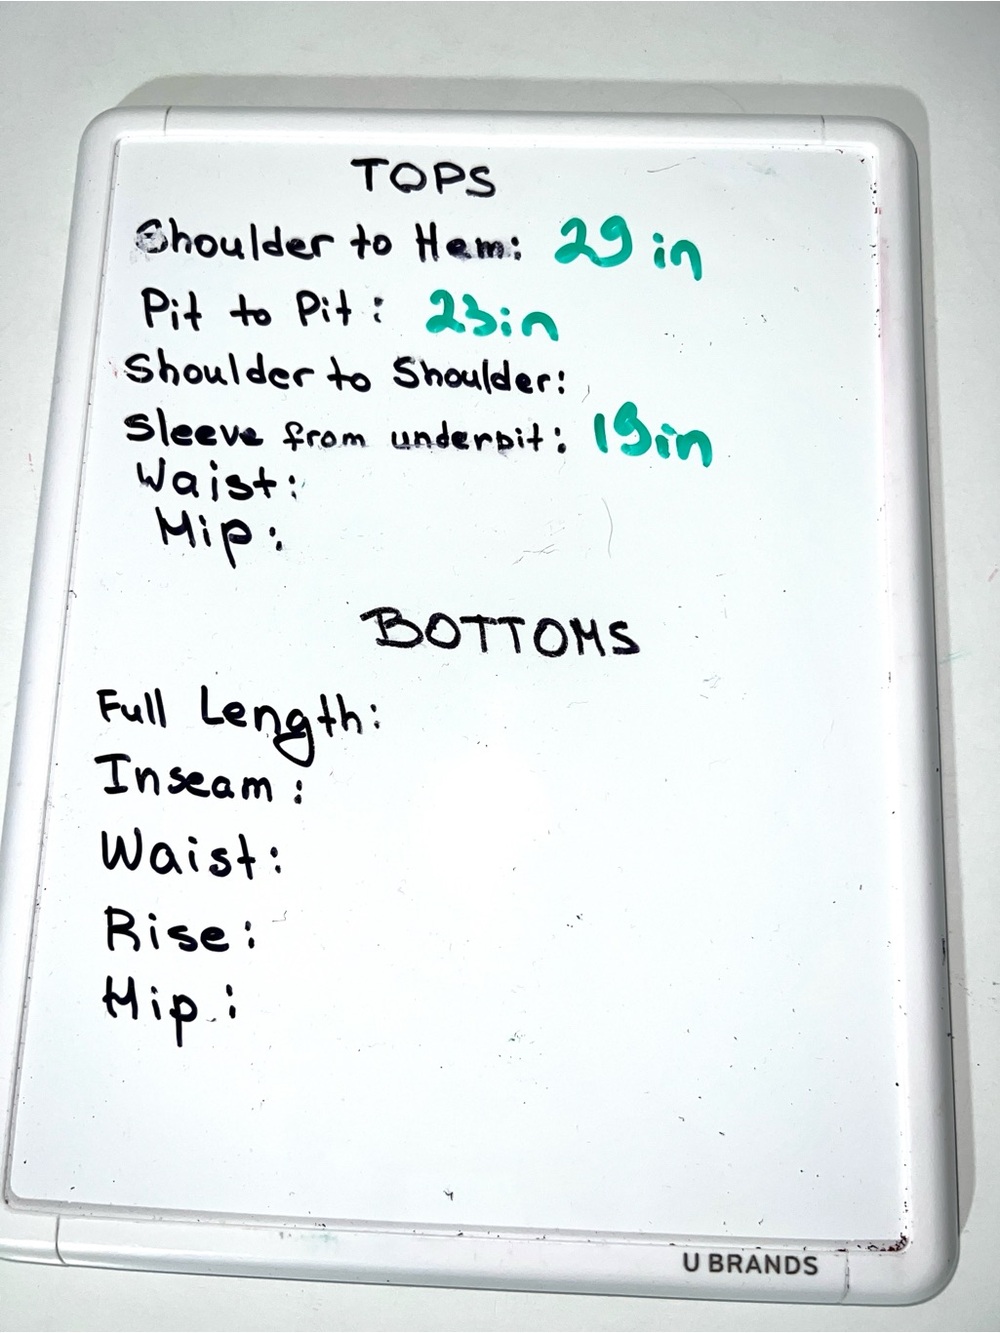 TOPS
Shoulder to Hem: 29 in
Pit to Pit: 23in
Shoulder to Shoulder:
Sleeve from underpit: 19in
Waist:
Hip:
BOTTOMS
Full Length:
Inseam:
Waist:
Rise:
Hip:
U BRANDS